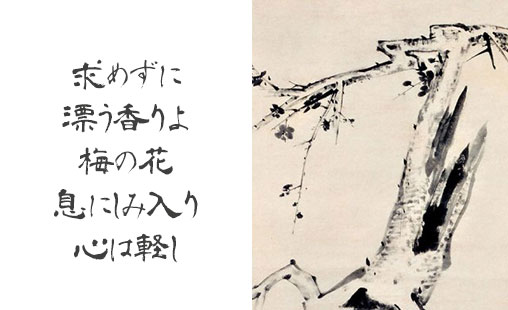 求めずに
漂う香りよ
梅の花
息にしみ入り
心は軽し